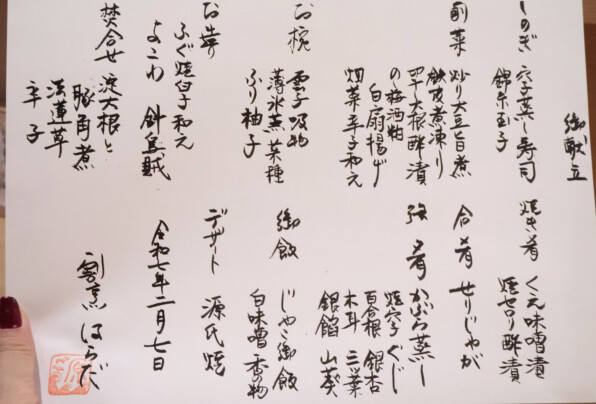 御献立
しのぎ 穴子蒸し寿司
錦糸玉子
前菜 炒り大豆旨煮
鉄皮煮凍り
四十大根酢漬
の梅酒粕
白扇揚げ
畑菜辛子和え
お椀 雲子吸物
薄氷蕪 菜種
ふり柚子
お造り ふぐ焼白子和え
よこわ 針烏賊
焚合せ 淀大根と
豚角煮
法蓮草
辛子
焼き肴 くえ味噌漬
焼セロリ酢漬
合肴 せりじゃが
強肴 かぶら蒸し
焼穴子 ぐじ
百合根 銀杏
木耳 三ツ葉
銀餡 山葵
御飯 じゃこ御飯
白味噌 香の物
デザート 源氏焼
令和七年二月七日
割烹 はらだ